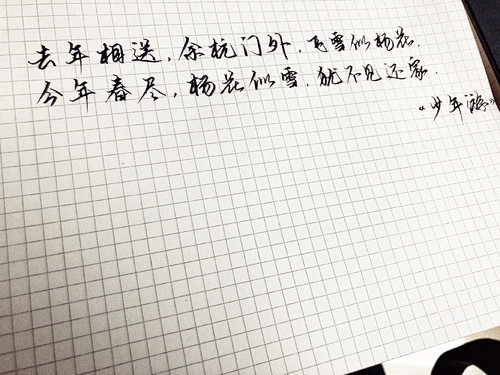 去年相送，余杭门外，飞雪似杨花．
今年春尽，杨花似雪，犹不见还家．
《少年游》